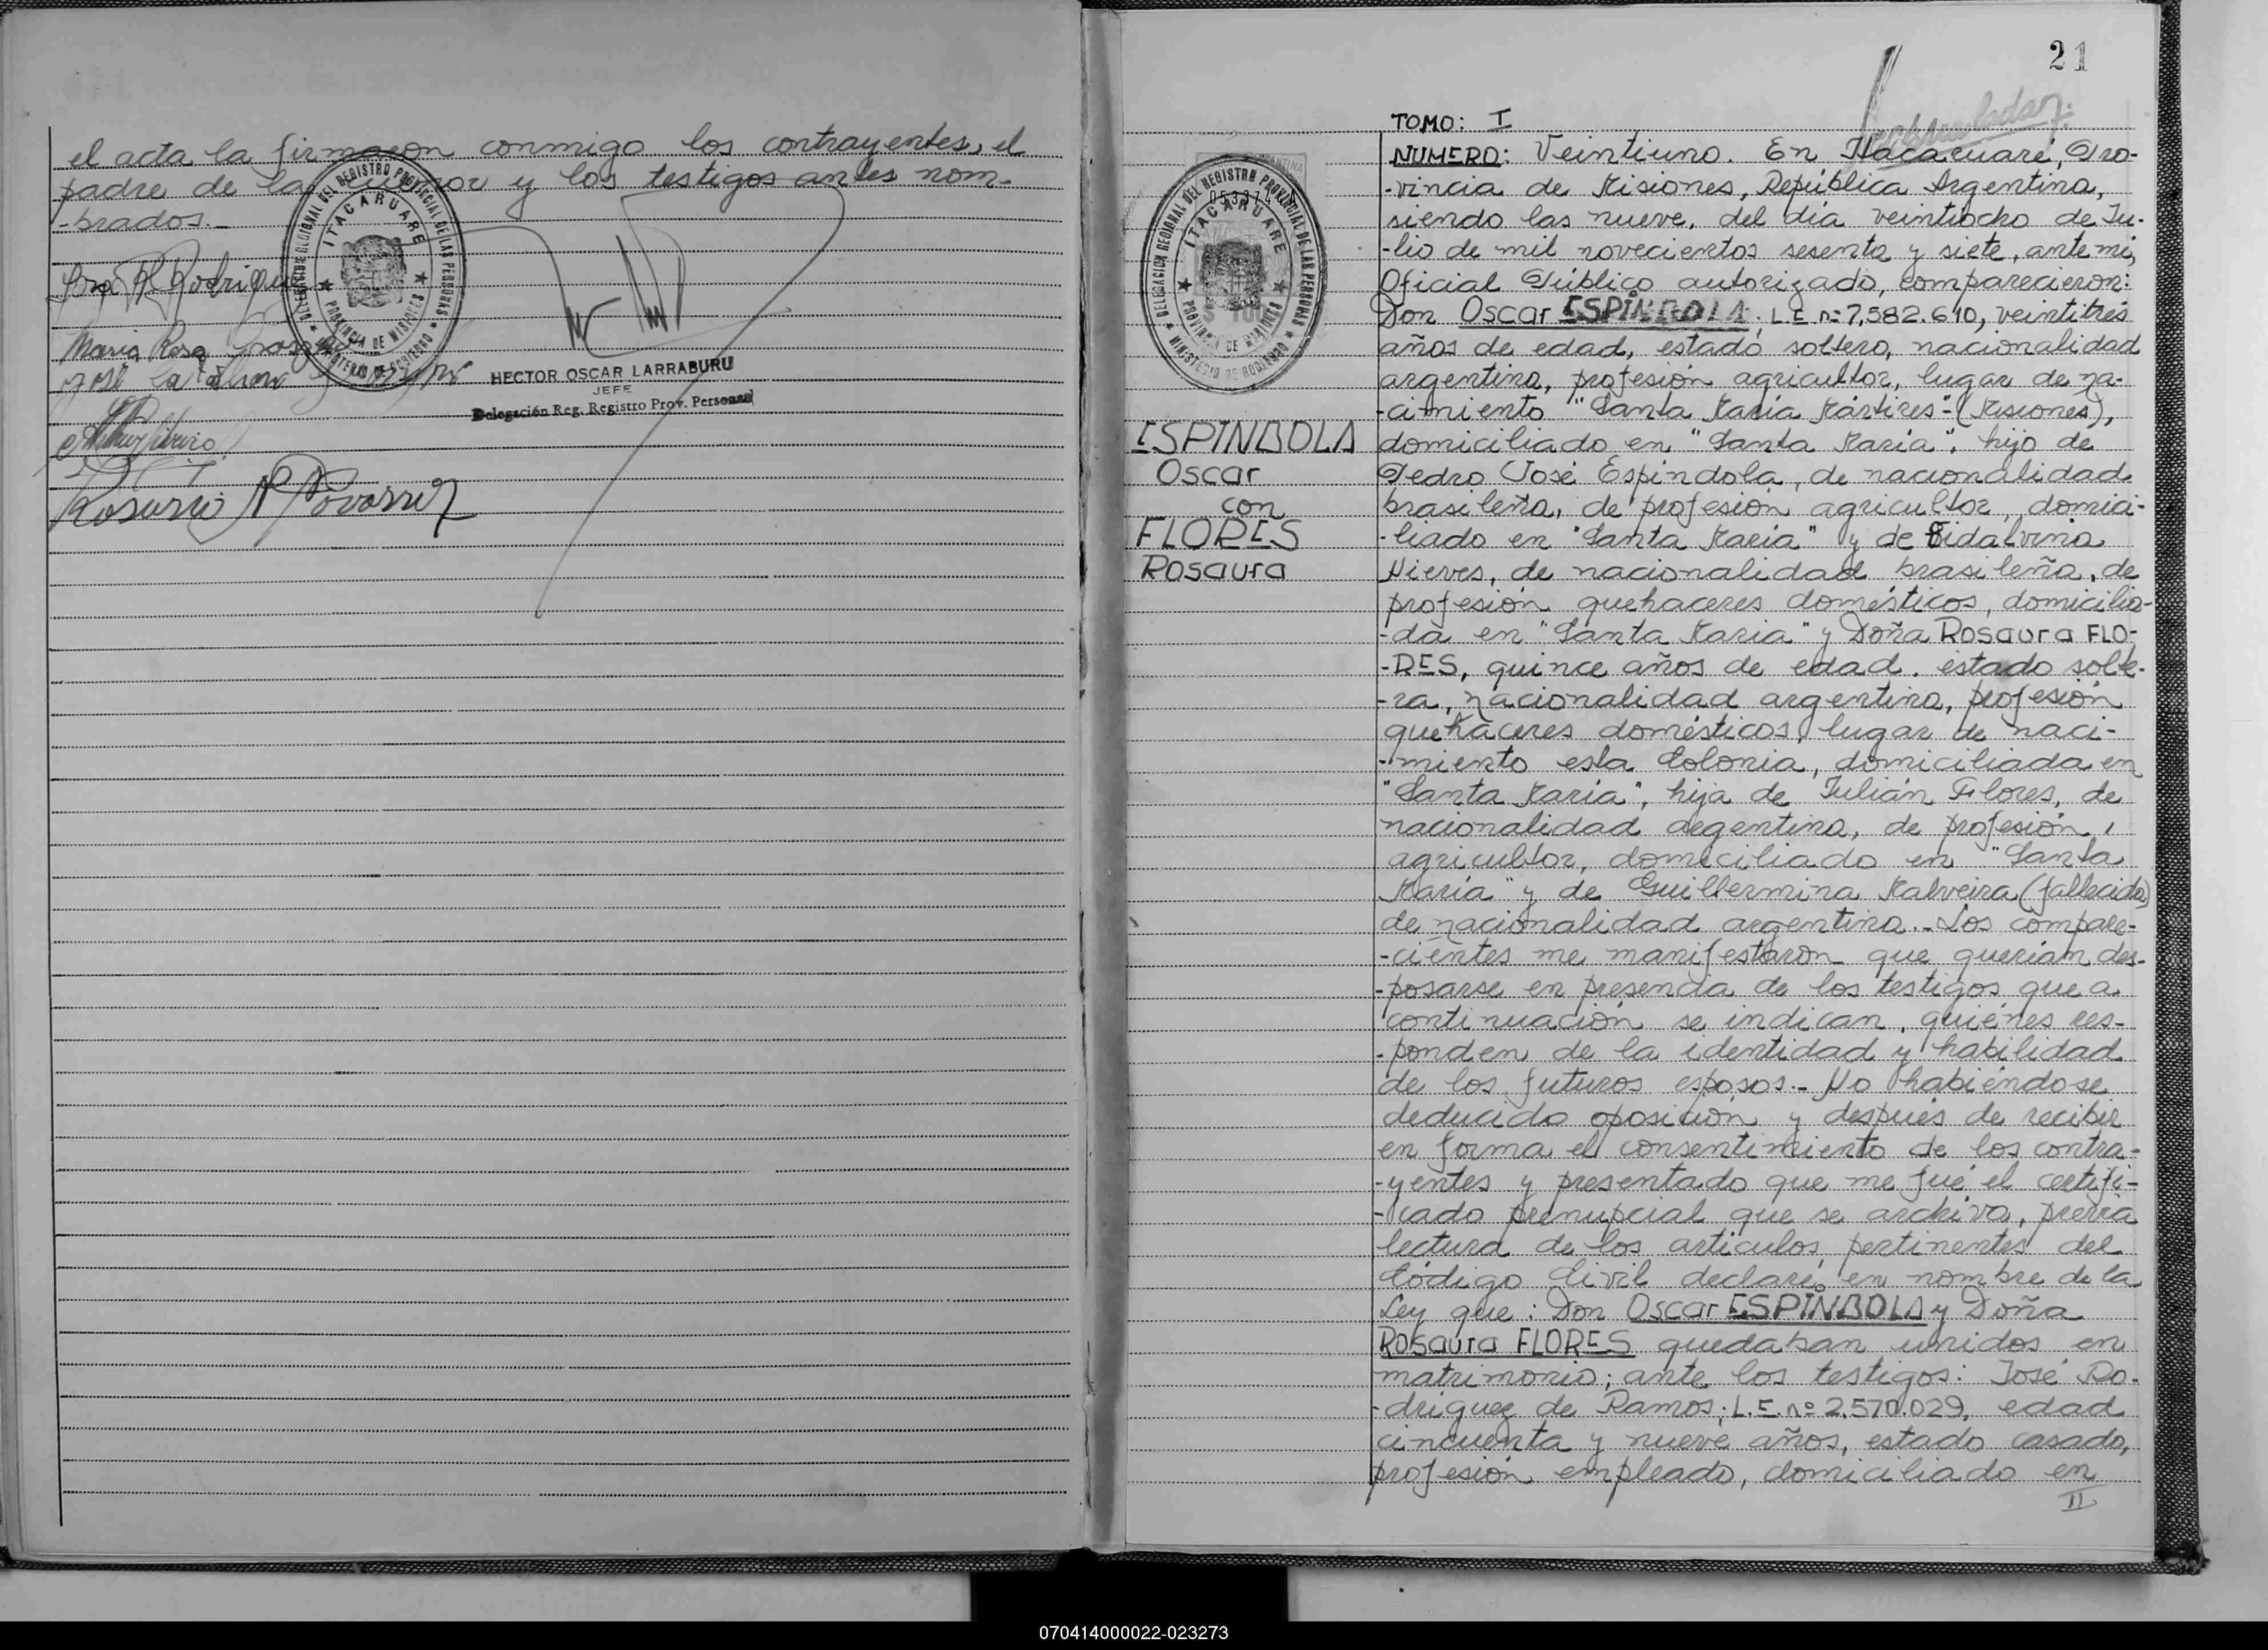 el acta la firmaron conmigo los contrayentes, el
padre de la menor y los testigos antes nom-
-brados.-
DELEGACION REGIONAL DEL REGISTRO PROVINCIAL DE LAS PERSONAS
ITACARUARE
PROVINCIA DE MISIONES
MINISTERIO DE GOBIERNO
Jorge R. Rodrigue
Maria Rosa
José
HECTOR OSCAR LARRABURU
JEFE
Delegación Reg. Registro Prov. Personas
Rosario
21
TOMO: I
NUMERO: Veintiuno. En Itacaruaré, Pro-
-vincia de Misiones, República Argentina,
siendo las nueve, del día veintiocho de Ju-
-lio de mil novecientos sesenta y siete, ante mi,
Oficial Público autorizado, comparecieron:
Don Oscar ESPINDOLA; L.E. nº 7,582.610, veintitrés
años de edad, estado soltero, nacionalidad
argentina, profesión agricultor, lugar de na-
-cimiento "Santa María Mártires"-(Misiones),
domiciliado en "Santa María", hijo de
Pedro José Espíndola, de nacionalidad
brasileña, de profesión agricultor, domici-
-liado en "Santa María" y de Sidalvina
Nieves, de nacionalidad brasileña, de
profesión quehaceres domésticos, domicilia-
-da en "Santa María" y Doña Rosaura FLO-
-RES, quince años de edad, estado solte-
-ra, nacionalidad argentina, profesión
quehaceres domésticos, lugar de naci-
-miento esta Colonia, domiciliada en
"Santa María", hija de Julián Flores, de
nacionalidad argentina, de profesión,
agricultor, domiciliado en "Santa
María" y de Guillermina Malveira (fallecida)
de nacionalidad argentina.- Los compare-
-cientes me manifestaron que querían des-
-posarse en presencia de los testigos que a
continuación se indican, quiénes res-
-ponden de la identidad y habilidad
de los futuros esposos.- No habiéndose
deducido oposición y después de recibir
en forma el consentimiento de los contra-
-yentes y presentado que me fué el certifi-
-cado prenupcial que se archiva, previa
lectura de los artículos pertinentes del
Código Civil declaré, en nombre de la
Ley que: Don Oscar ESPINDOLA y Doña
Rosaura FLORES quedaban unidos en
matrimonio; ante los testigos: José Ro-
-dríguez de Ramos; L.E. nº 2.570.029, edad
cincuenta y nueve años, estado casado,
profesión empleado, domiciliado en
II
DELEGACION REGIONAL DEL REGISTRO PROVINCIAL DE LAS PERSONAS
ITACARUARE
PROVINCIA DE MISIONES
MINISTERIO DE GOBIERNO
ESPINDOLA
Oscar
con
FLORES
Rosaura
070414000022-023273